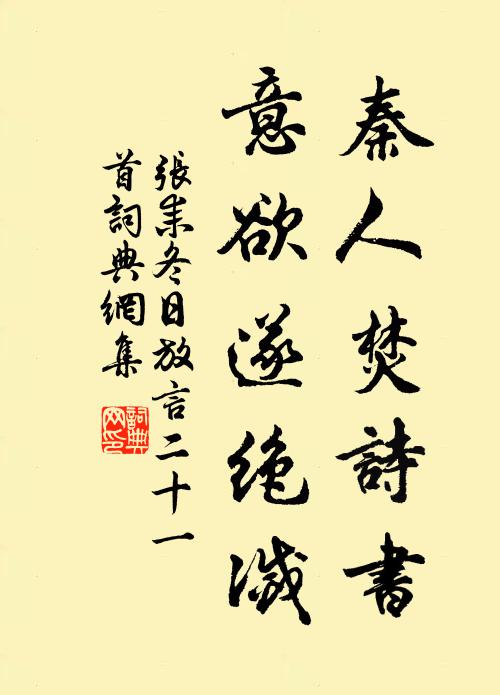 秦人焚詩書
意欲遂絶滅
張耒冬日放言二十一
首詞典網集
詞典网印